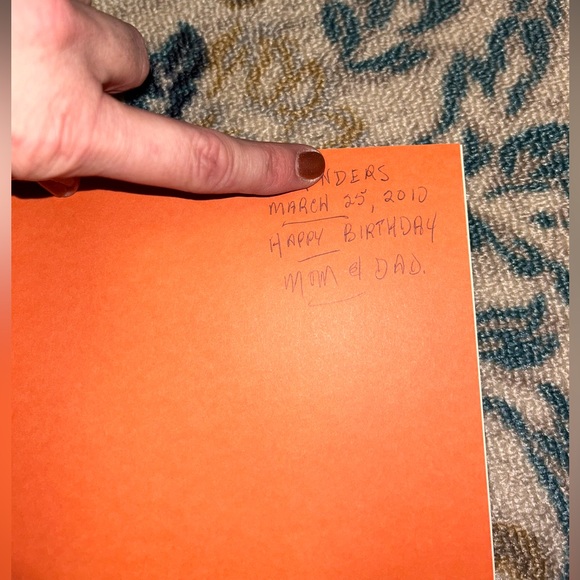 MARCH 25, 2010
HAPPY BIRTHDAY
MOM & DAD.